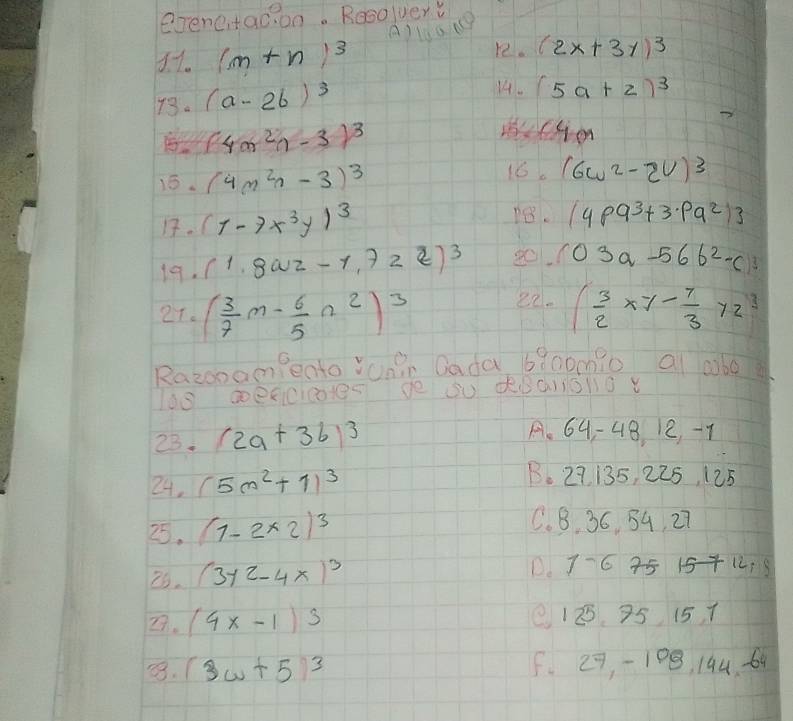 ejercitación. Resolver:
11. (m + n)³ 12. (2x + 3y)³
13. (a - 2b)³ 14. (5a + z)³
15. (4m²n - 3)³ 16. (6w² - 2v)³
17. (1 - 7x³y)³ 18. (4pq³ + 3·pq²)³
19. (1.8wz - 1,7z²)³ 20. (03a - 566² - c)³
21. (3/7 m - 6/5 n²)³ 22. (3/2 xy - 7/3 yz)³
Razonamiento: Unir Cada binomio al cubo
los coeficientes de su desarrollo:
23. (2a + 3b)³ A. 64, -48, 12, -1
24. (5m² + 1)³ B. 27, 135, 225, 125
25. (1 - 2x2)³ C. 8, 36, 54, 27
26. (3y2 - 4x)³ D. 1 -6 75 15 + 12, 8
27. (4x - 1)3 e. 125, 75, 15, 1
28. (3w + 5)³ F. 27, -108, 144, -64